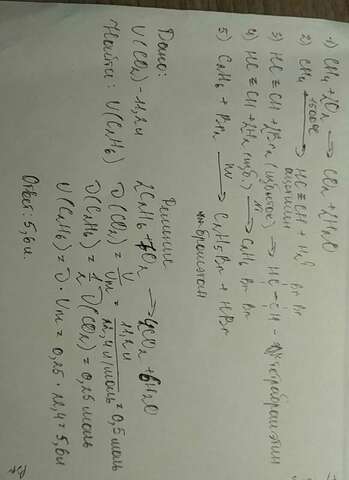 1) CH4 + 2O2 → CO2 + 2H2O
2) CH4 1500°C → HC≡CH + H2
ацетилен
Br Br
3) HC≡CH + 2Br2 (избыток) → HC – CH – тетрабромэтан
Br Br
4) HC≡CH + 2H2 (изб.) Ni → C2H6
5) C2H6 + Br2 hν → C2H5Br + HBr
бромэтан
Дано:
V(CO2) - 11,2 л
Найти: V(C2H6)
Решение
2C2H6 + 7O2 → 4CO2 + 6H2O
ν(CO2) = V/Vm = 11,2 л/22,4 л/моль = 0,5 моль
ν(C2H6) = 1/2 ν(CO2) = 0,25 моль
V(C2H6) = ν · Vm = 0,25 · 22,4 = 5,6 л
Ответ: 5,6 л.